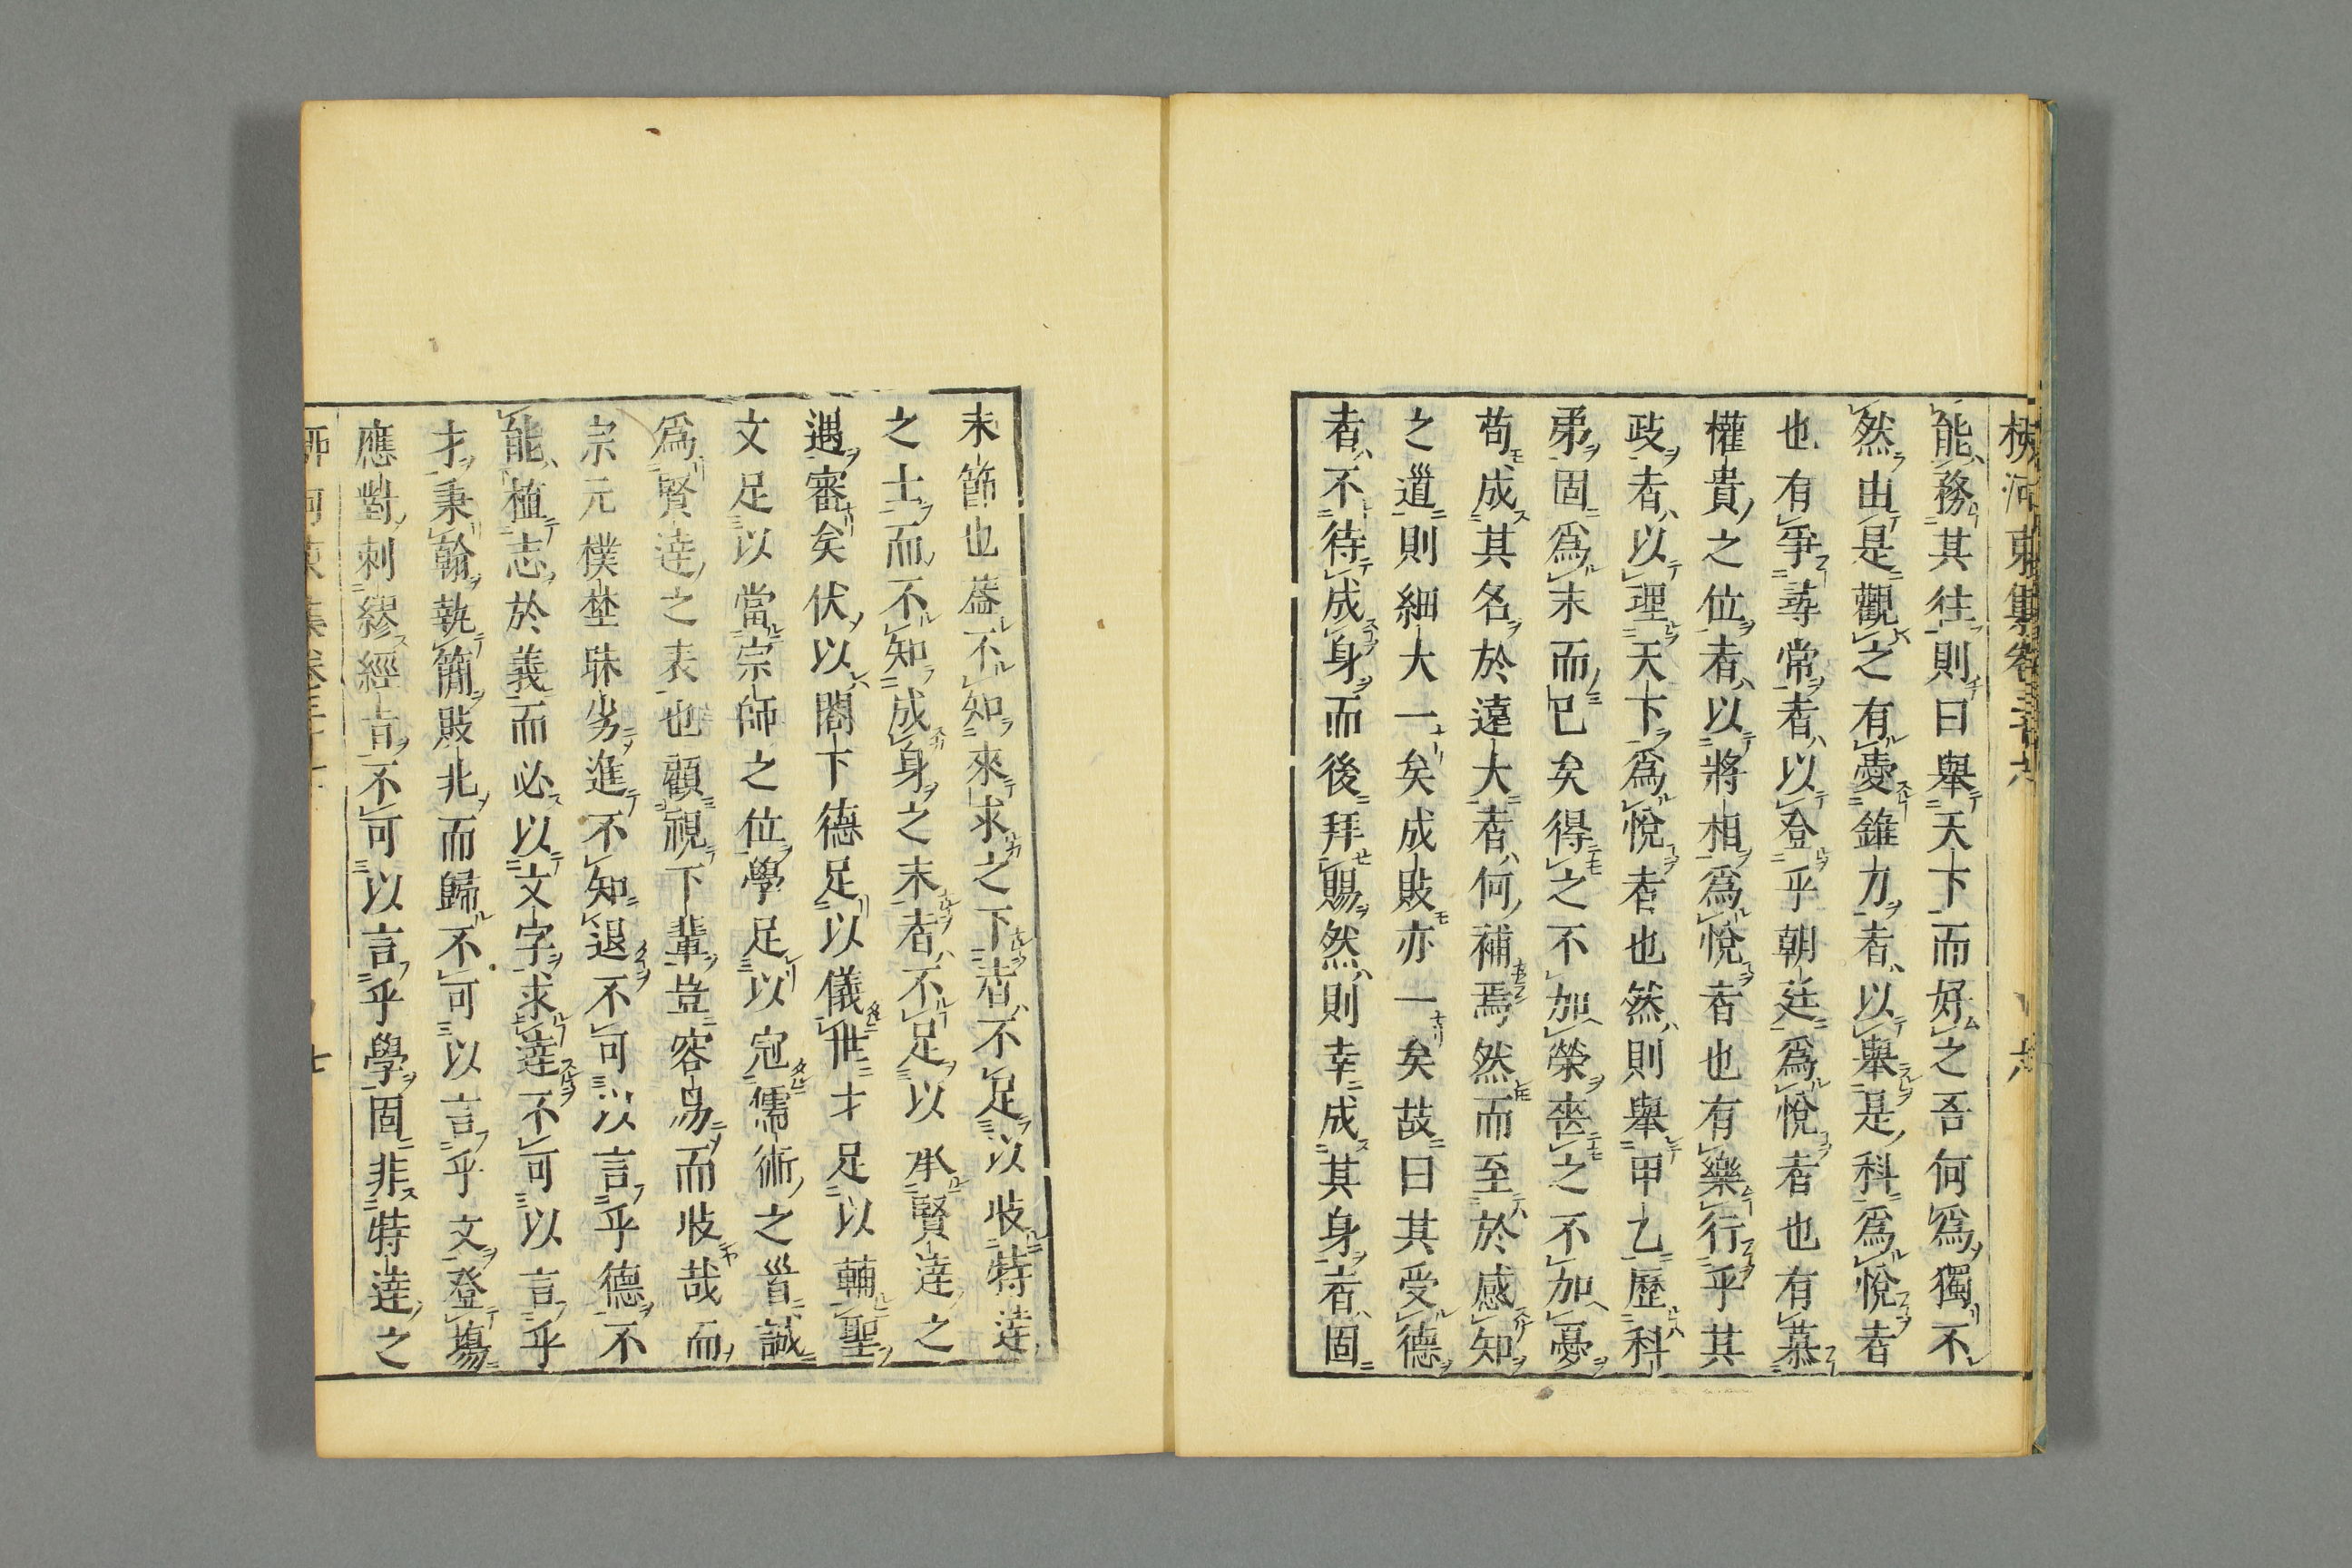 柳河東集卷三十六　六
能務其往則曰舉天下而好之吾何爲獨不
然由是觀之有愛錐刀者以舉是科爲悅者
也有爭尋常者以登乎朝廷爲悅者也有慕
權貴之位者以將相爲悅者也有樂行乎其
政者以理天下爲悅者也然則舉甲乙歷科
第固爲末而已矣得之不加榮喪之不加憂
苟成其名於遠大者何補焉然而至於感知
之道則細大一矣成敗亦一矣故曰其受德
者不待成身而後拜賜然則幸成其身者固
末節也蓋不知來求之下者不足以收特達
之士而不知成身之末者不足以承賢達之
遇審矣伏以閣下德足以儀世才足以輔聖
文足以當宗師之位學足以冠儒術之首誠
爲賢達之表也顧視下輩豈容易而收哉而
宗元樸埜昧劣進不知退不可以言乎德不
能植志於義而必以文字求達不可以言乎
才秉翰執簡敗北而歸不可以言乎文登場
應對刺繆經旨不可以言乎學固非特達之
柳河東集卷三十　七